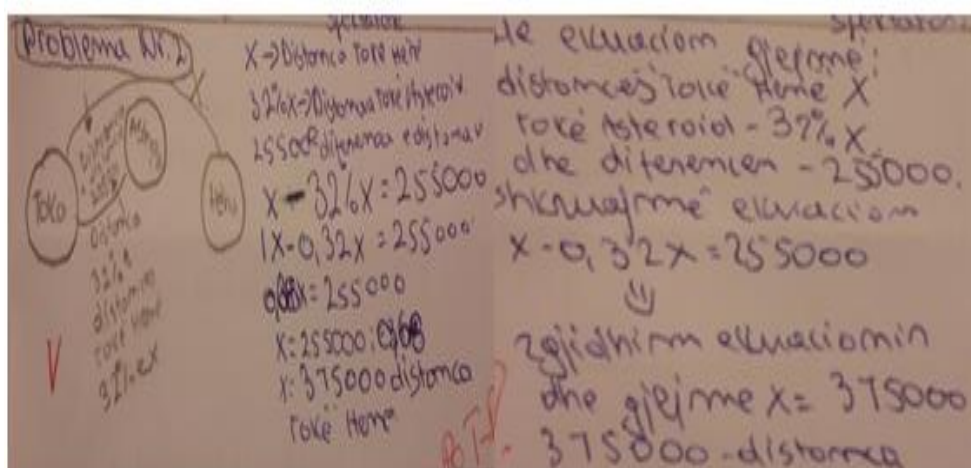 Problema Nr.2
Toka
Hena
distanca
32% e
distancës
tokë Hënë
32% e X
X→Distanca tokë Hënë
32%x→Distanca tokë Asteroid
255000 diferenca e distancave
X-32%x=255000
1X-0,32x=255000
0,68x=255000
X=255000:0,68
X=375000 distanca
Tokë Hënë
ekuacion gjejmë:
distancës Tokë Hënë X
Tokë Asteroid - 32% X
dhe diferencën - 255000.
shkruajmë ekuacion
x-0,32x=255000
zgjidhim ekuacionin
dhe gjejmë X= 375000
375000-distanca